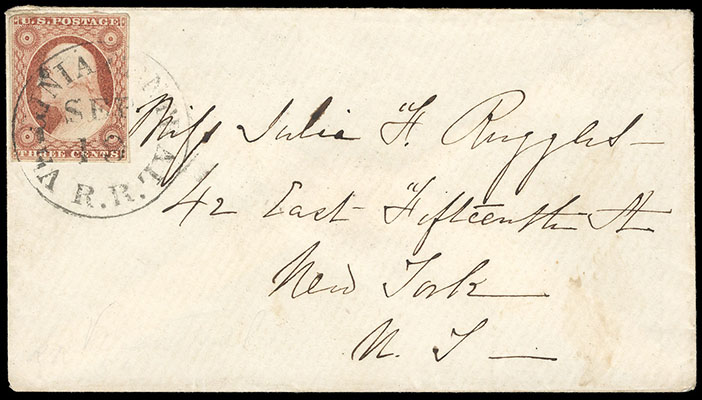 U.S. POSTAGE
THREE CENTS
VIRGINIA CENTRAL R.R.
SEP
Miss Julia H. Ruggles
42 East Fifteenth St
New York
N. Y